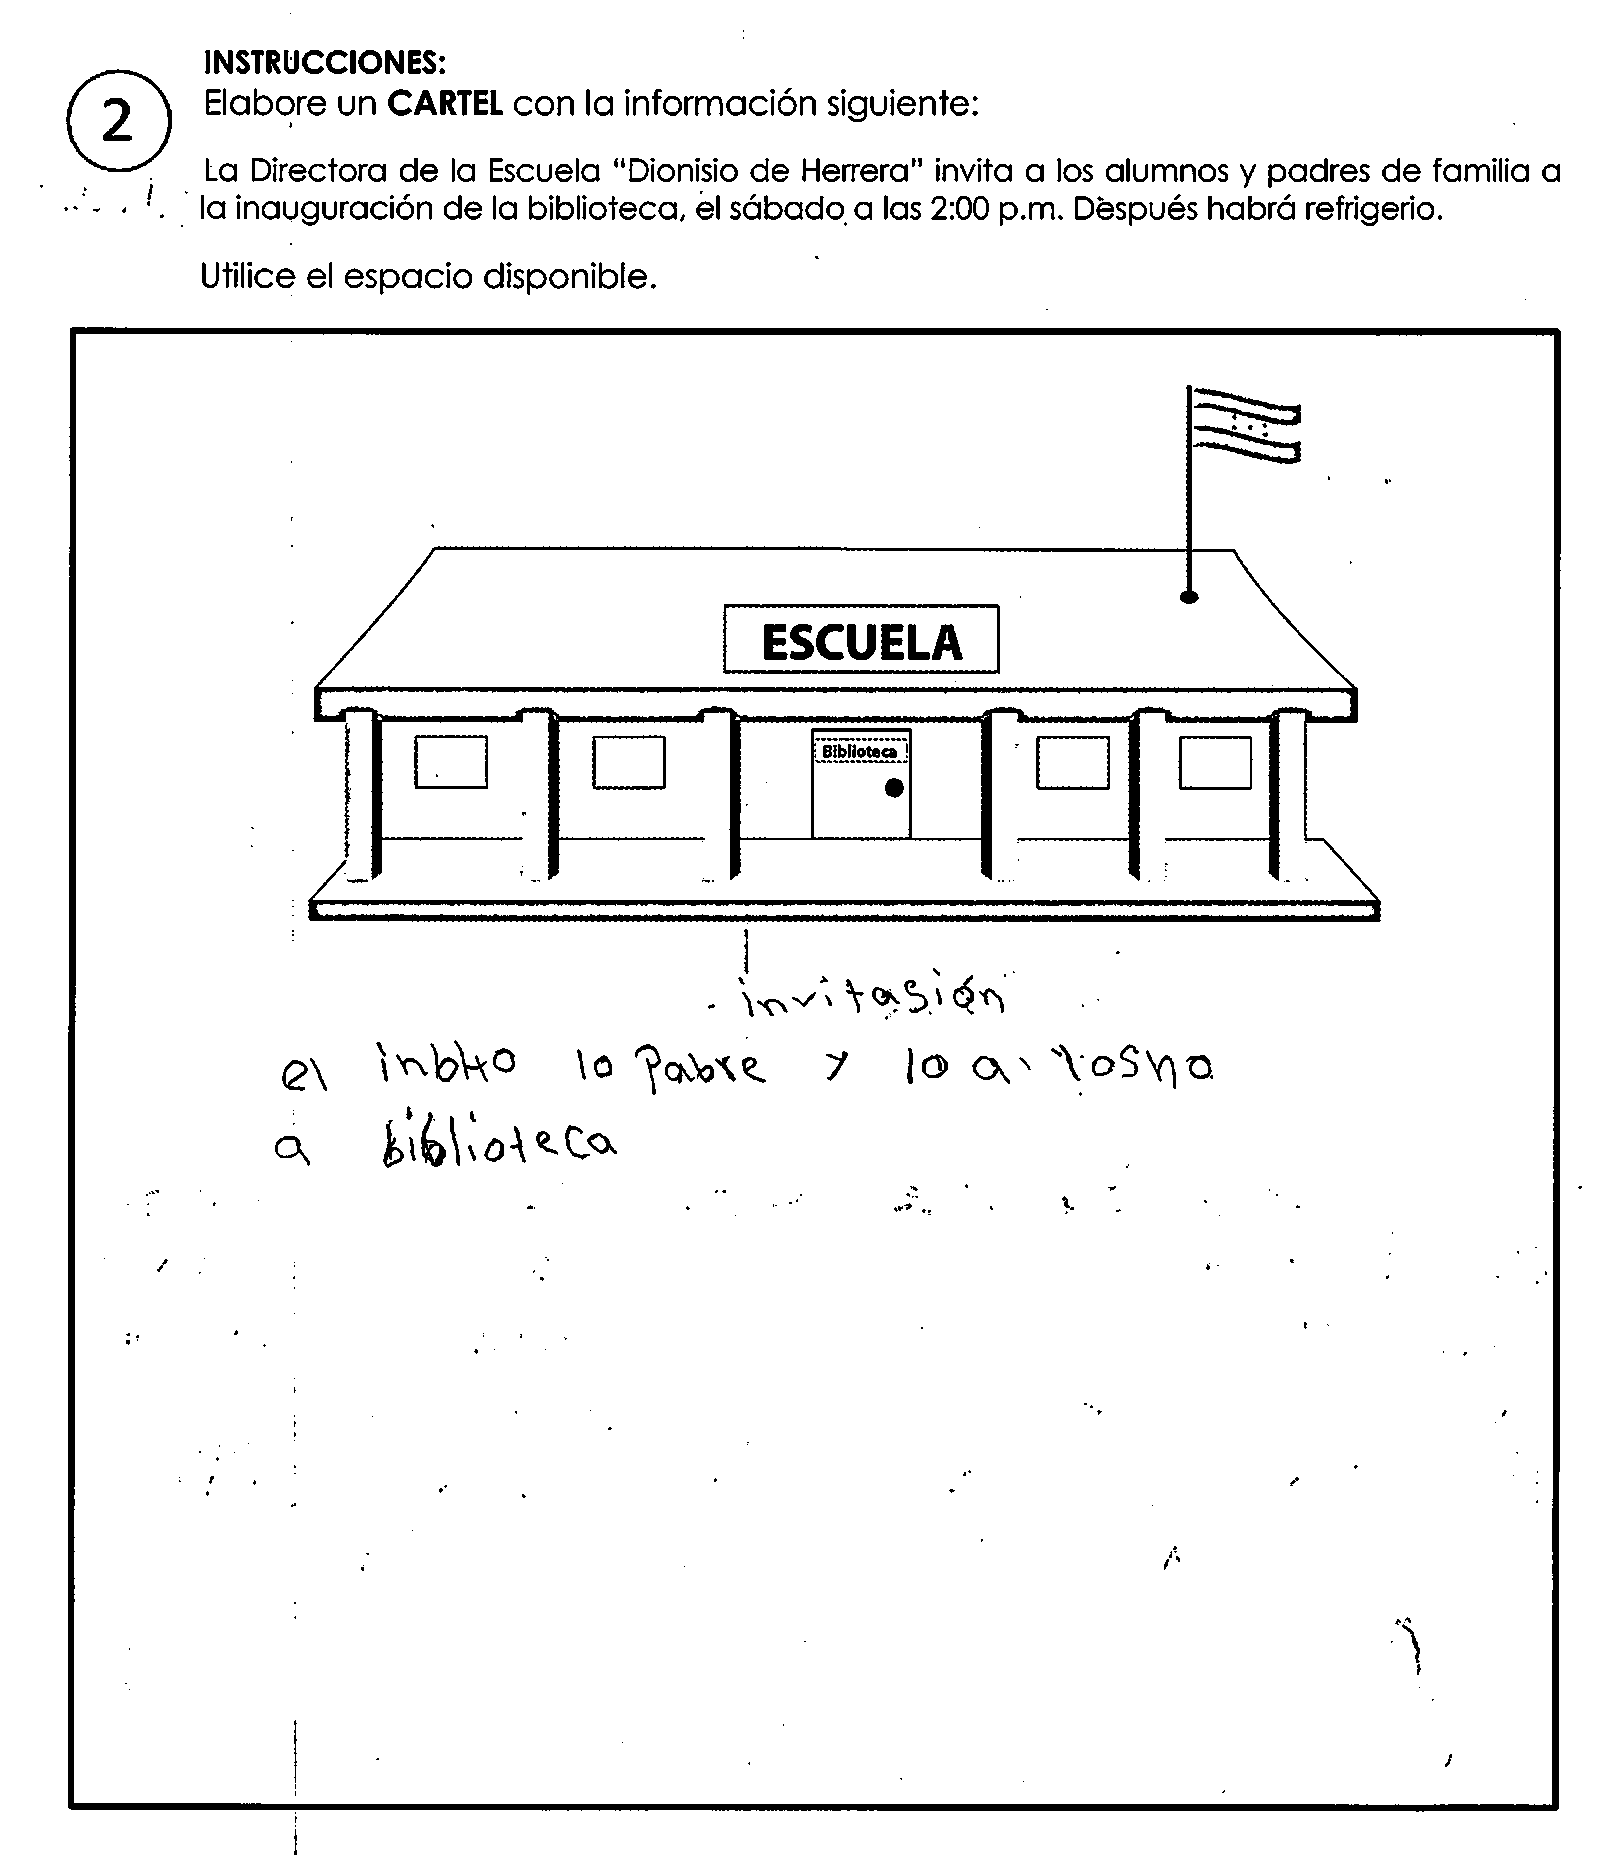 INSTRUCCIONES:
2
Elabore un CARTEL con la información siguiente:
La Directora de la Escuela "Dionisio de Herrera" invita a los alumnos y padres de familia a
la inauguración de la biblioteca, el sábado a las 2:00 p.m. Después habrá refrigerio.
Utilice el espacio disponible.
ESCUELA
Biblioteca
invitasión
el lo Pabre y lo
a biblioteca